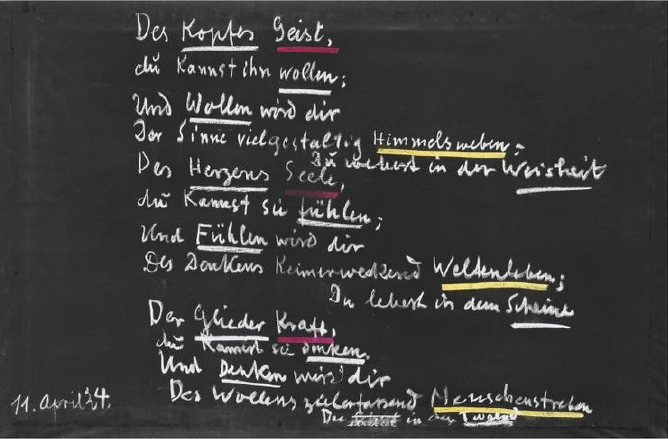 Des Kopfes Geist,
du kannst ihn wollen;
Und Wollen wird dir
Der Sinne vielgestaltig Himmelsweben;
Du webest in der Weisheit
Des Herzens Seele,
du kannst sie fühlen;
Und Fühlen wird dir
Des Denkens Keimerweckend Weltenleben;
Du lebest in dem Scheine
Der Glieder Kraft,
du kannst sie denken.
Und Denken wird dir
Des Wollens zielerfassend Menschenstreben
Du in der Tugend
11. April 24.